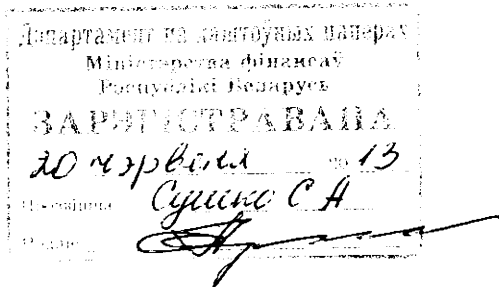 Дэпартамент па каштоўных паперах
Міністэрства фінансаў
Рэспублікі Беларусь
ЗАРЭГІСТРАВАНА
20 чэрвеня 13
Сушко С А